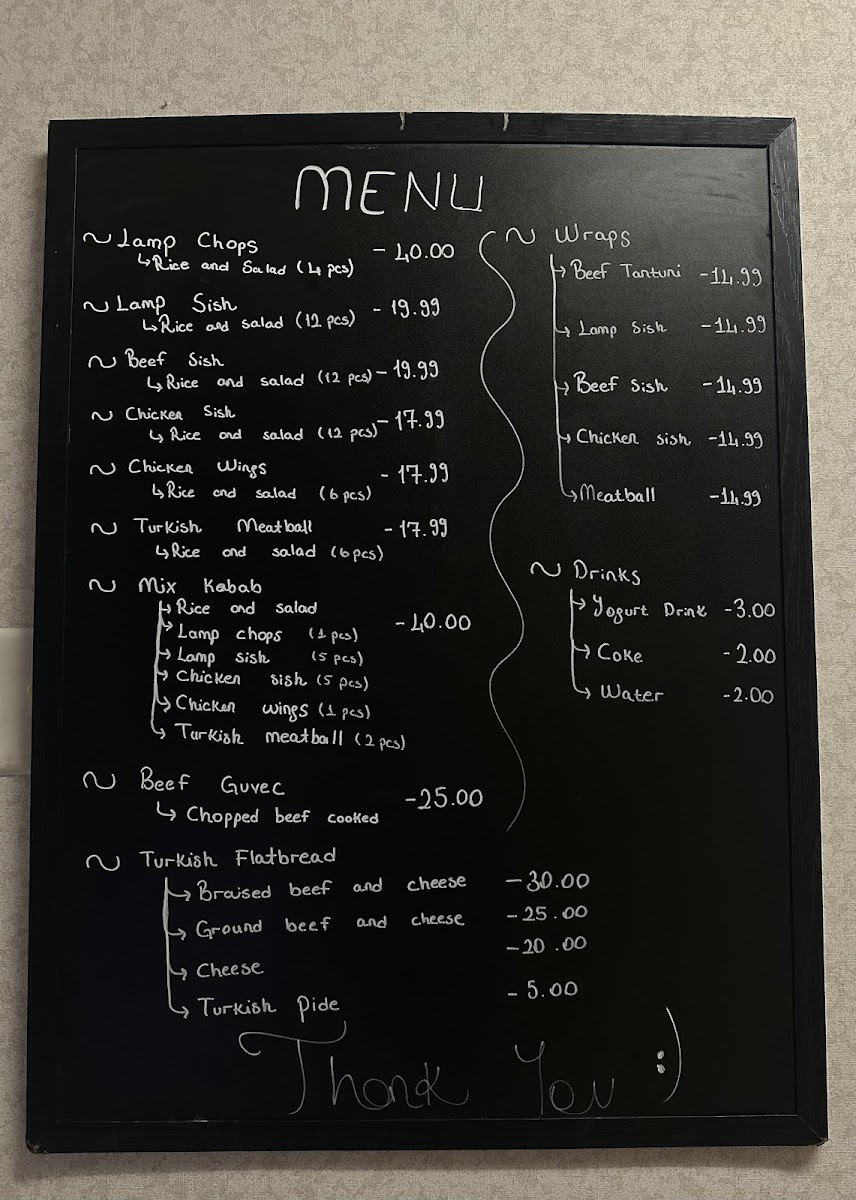 MENU
~ Lamp Chops - 40.00
↳ Rice and Salad (4 pcs)
~ Lamp Sish - 19.99
↳ Rice and salad (12 pcs)
~ Beef Sish
↳ Rice and salad (12 pcs) - 19.99
~ Chicken Sish - 17.99
↳ Rice and salad (12 pcs)
~ Chicken Wings - 17.99
↳ Rice and salad (6 pcs)
~ Turkish Meatball - 17.99
↳ Rice and salad (6 pcs)
~ Mix Kebab
Rice and salad - 40.00
Lamp chops (1 pcs)
Lamp sish (5 pcs)
Chicken sish (5 pcs)
Chicken wings (1 pcs)
Turkish meatball (2 pcs)
~ Beef Guvec - 25.00
↳ Chopped beef cooked
~ Wraps
Beef Tantuni - 14.99
Lamp Sish - 14.99
Beef Sish - 14.99
Chicken sish - 14.99
Meatball - 14.99
~ Drinks
Yogurt Drink - 3.00
Coke - 2.00
Water - 2.00
~ Turkish Flatbread
Braised beef and cheese - 30.00
Ground beef and cheese - 25.00
Cheese - 20.00
Turkish Pide - 5.00
Thank You :)